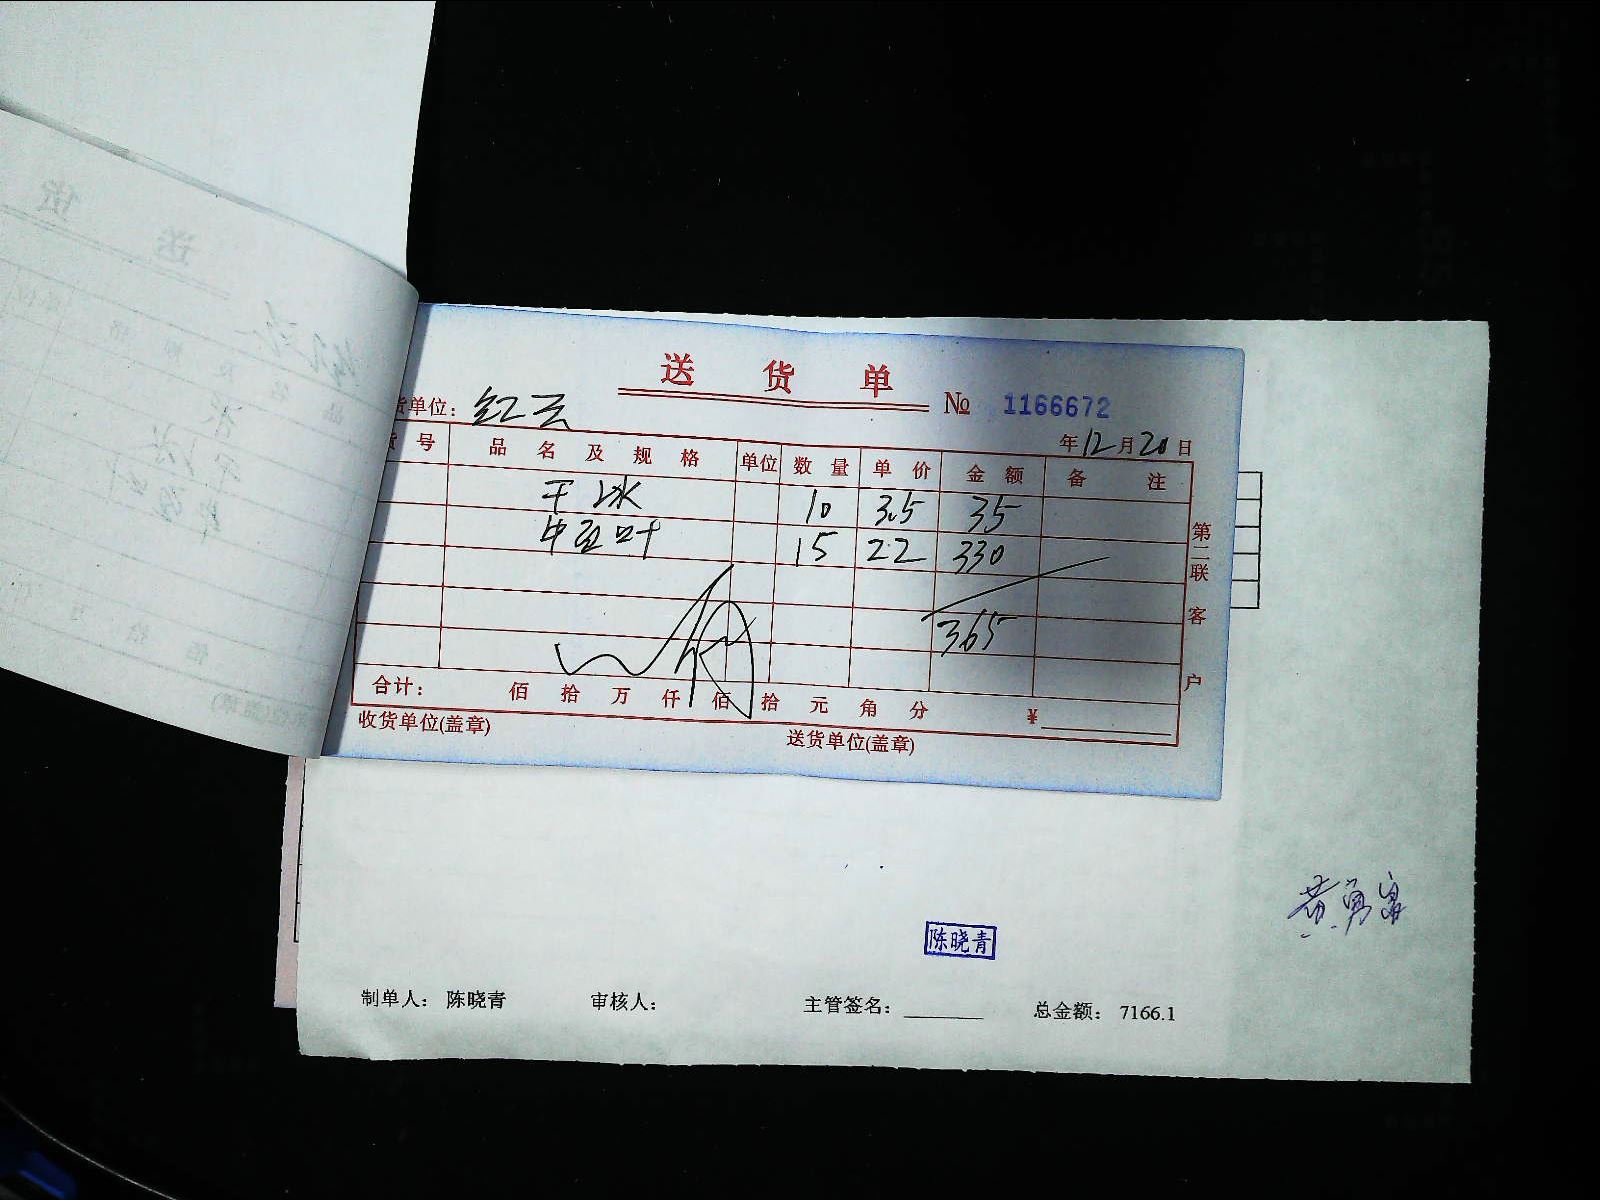 送 货 单
№ 1166672
货单位: 红云
年12月20日
货 号 品 名 及 规 格 单位 数 量 单 价 金 额 备 注
干冰 10 3.5 35
叶 15 22 330
365
合计: 佰 拾 万 仟 佰 拾 元 角 分 ¥
收货单位(盖章) 送货单位(盖章)
第二联 客户
黄勇富
陈晓青
制单人: 陈晓青 审核人: 主管签名: 总金额: 7166.1